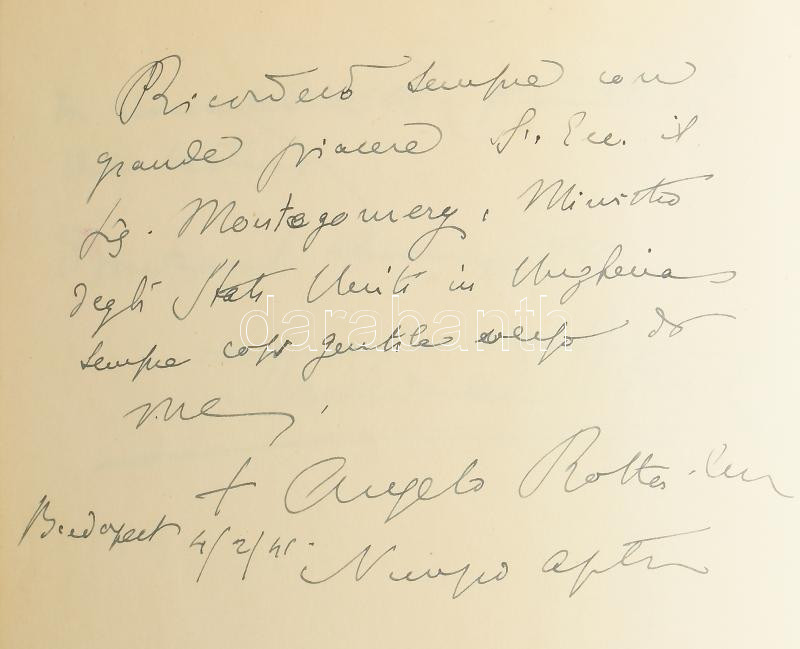 Ricorderò sempre con
grande piacere S. Ecc. il
Sig. Montogomery, Ministro
degli Stati Uniti in Ungheria
sempre così gentile verso di
me,
+ Angelo Rotta
Budapest 4/2/41. Nunzio apᵗᵒ
darabanth